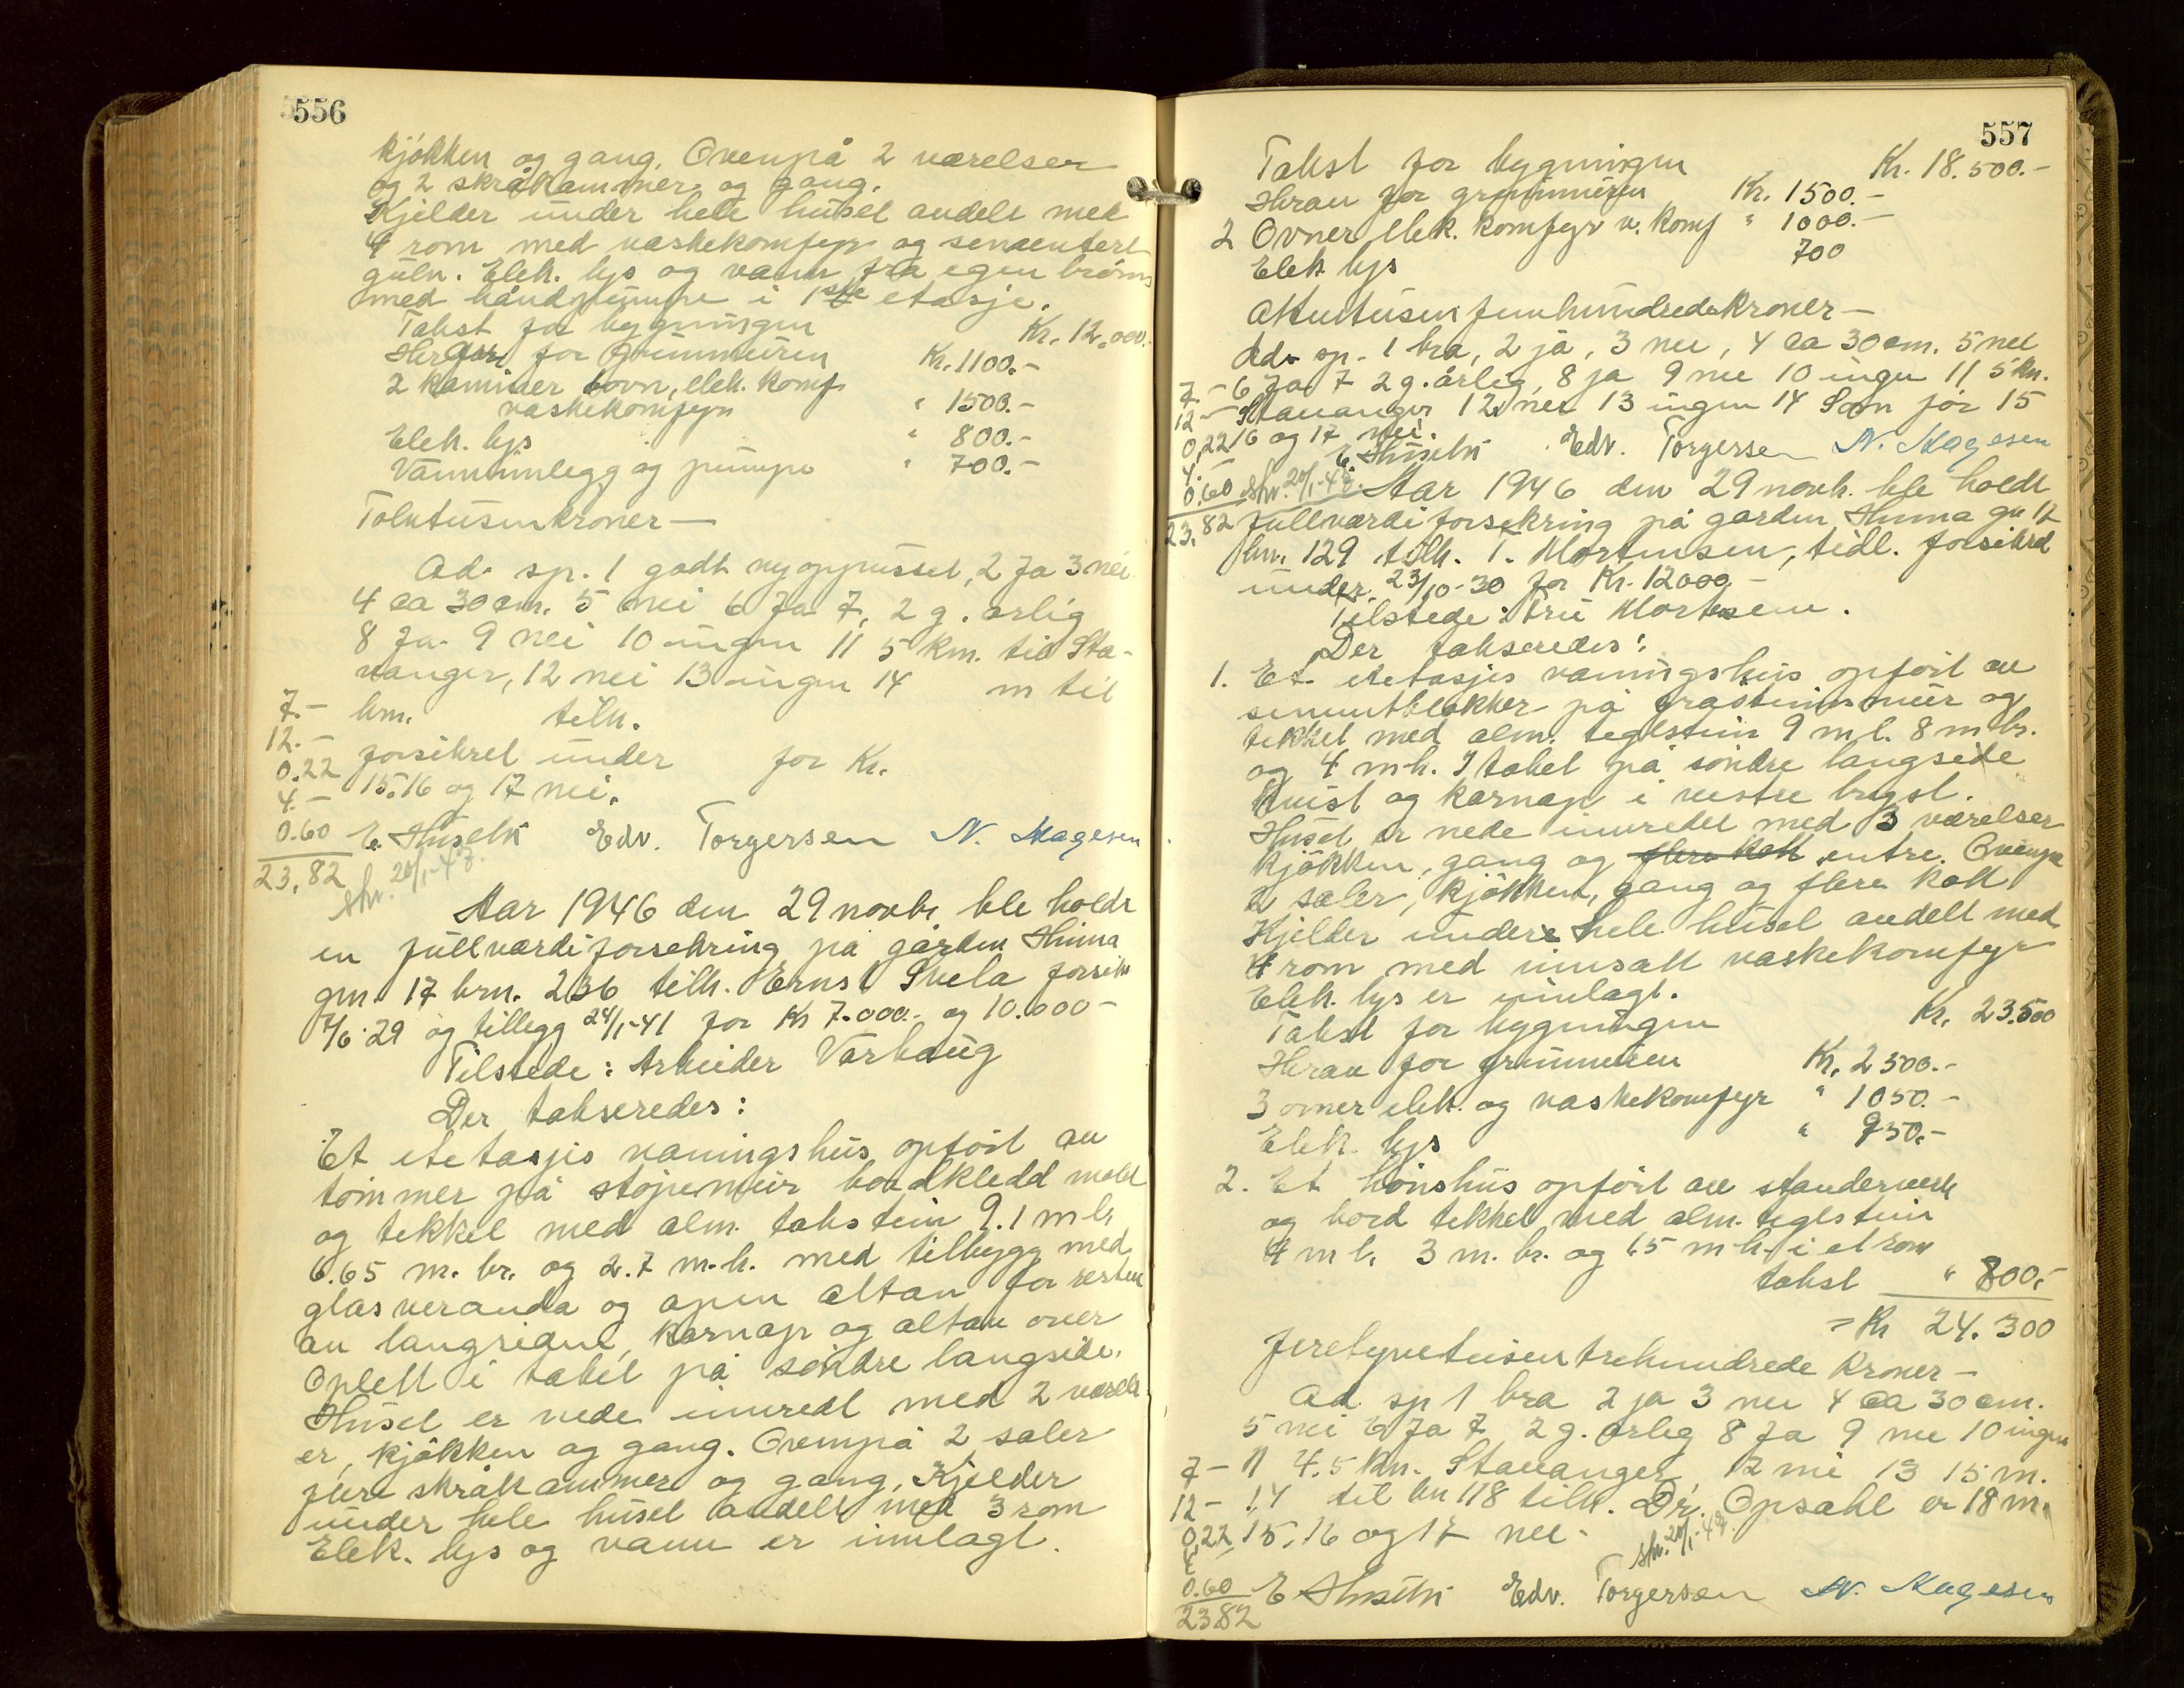 556
kjökken og gang. Ovenpå 2 værelser
og 2 skråkammer og gang.
Kjelder under hele huset avdelt med
4 rom med vaskekomfyr og sementert
gulv. Elek. lys og vann fra egen brönn
med håndpumpe i 1ste etasje.
Takst for bygningen Kr. 12,000.-
Herav for grunmuren Kr. 1100.-
2 kaminer ovn, elek. komf.
vaskekomfyr " 1500.-
Elek. lys " 800.-
Vanninnlegg og pumpe " 700.-
Tolvtusenkroner —
Ad. sp. 1 godt nyoppusset, 2 Ja 3 nei
4 ca 30 cm. 5 nei 6 Ja 7, 2 g. årlig
8 Ja 9 nei 10 ingen 11 5 km. til Sta-
vanger, 12 nei 13 ingen 14 m til
7.- bnr. tilh.
12.-
0.22 forsikret under for Kr.
4.- 15.16 og 17 nei.
0.60 E. Husebö Edv. Torgersen N. Aagesen
23,82 skr. 20/1-47.
Aar 1946 den 29 novbr ble holdt
en fullverdiforsekring på gården Hinna
gnr. 17 brn. 236 tilh. Ernst Svela forsikr
7/6-29 og tillegg 24/1-41 for Kr 7.000.- og 10.000-
Tilstede: Arbeider Varhaug
Der takseredes:
Et etetasjes våningshus opfört av
tömmer på stöpemur bordkledd malt
og tekket med alm. takstein 9.1 m l.
6.65 m. br. og 2.7 m. h. med tilbygg med
glasveranda og åpen altan for resten
av langsiden, karnap og altan over
Oplett i taket på söndre langside.
Huset er nede innredt med 2 værels
er, kjökken og gang. Ovenpå 2 saler
flere skråkammer og gang. Kjelder
under hele huset avdelt med 3 rom
Elek. lys og vann er innlagt.
557
Takst for bygningen Kr. 18.500.-
Herav for grunmuren Kr. 1500.-
2 Ovner elek. komfyr v. komf " 1000.-
Elek lys 700
Attentusenfemhundredekroner —
Ad. sp. 1 bra, 2 ja, 3 nei, 4 ca 30 cm. 5 nei
7.- 6 Ja 7 2 g. årlig, 8 ja 9 nei 10 ingen 11 5 km.
12- Stavanger 12 nei 13 ingen 14 Som för 15
0,22 16 og 17 nei.
4.- E. Husebö Edv. Torgersen N. Aagesen
0.60 skr. 20/1-47. Aar 1946 den 29 novb. ble holdt
23,82 fullverdiforsekring på garden Hinna gn 17
bn. 129 tilh. T. Mortensen, tidl. forsikret
under 23/10-30 for Kr. 12000 -
Tilstede: Fru Mortensen.
Der takseredes:
1. Et etetasjes våningshus opfört av
sementblokker på gråsteinsmur og
tekket med alm. teglstein 9 m l. 8 m br.
og 4 m h. I taket på söndre langside
kvist og karnap i vestre bryst.
Huset er nede innredet med 3 værelser
kjökken, gang og flere kott entre. Ovenpå
2 saler, kjökken, gang og flere kott
Kjelder under hele huset avdelt med
4 rom med innsatt vaskekomfyr
Elek. lys er innlagt.
Takst for bygningen Kr. 23.500
Herav for grunmuren Kr. 2500.-
3 ovner elek. og vaskekomfyr " 1050.-
Elek. lys " 950.-
2. Et hönshus opfört av standerverk
og bord tekket med alm. teglstein
4 m l. 3 m. br. og 1.5 m h. i et rom
takst " 800.-
= Kr 24.300
Firetyvetusentrehundrede Kroner —
Ad sp 1 bra 2 ja 3 nei 4 ca 30 cm.
5 nei 6 Ja 7 2 g. årleg 8 Ja 9 nei 10 ingen
7- 11 4.5 km. Stavanger, 12 nei 13 15 m.
12- 14 til bn 118 tilh. Dr. Opsahl er 18 m.
0,22 15, 16 og 17 nei.
4.- skr. 20/1-47.
0.60 E Husebö Edv. Torgersen N. Aagesen
23.82